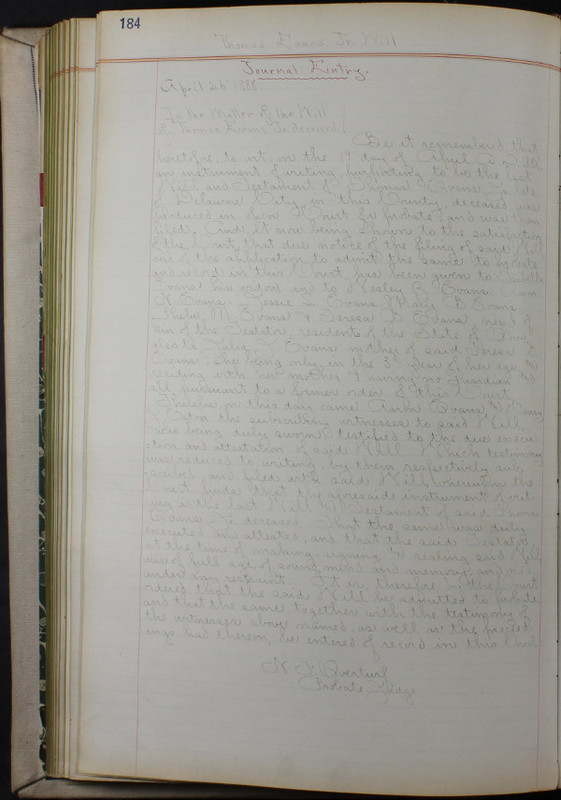 184
Thomas Evans Jr Will
Journal Entry.
April 26 1888.
In the Matter of the Will
of Thomas Evans Jr deceased
Be it remembered that
heretofore, to wit, on the 19 day of April A. D. 1888
an instrument of writing purporting to be the last
Will and Testament of Thomas Evans Jr late
of Delaware City in this County, deceased was
produced in Open Court for probate and was then
filed. And, it now being shown to the satisfaction
of the Court, that due notice of the filing of said Will
and of the application to admit the same to probate
and record in this Court has been given to
Evans his widow and to Wesley Evans
N Evans Jessie Evans Mary B Evans
M. Evans & Teresa B Evans next of
kin of the Testator, residents of the State of Ohio,
also to Evans mother of said Teresa B
Evans she being only in the 3d year of her age
residing with her mother & having no guardian
all pursuant to a former order of this Court
on this day came Evans
the subscribing witnesses to said Will
who being duly sworn testified to the due execu-
tion and attestation of said Will Which testimony
was reduced to writing, by them respectively sub-
scribed and filed with said Will whereupon the
Court finds that the aforesaid instrument of writ-
ing is the last Will and Testament of said Thomas
Evans Jr deceased. That the same was duly
executed and attested, and that the said Testator
at the time of making, signing and sealing said Will
was of full age, of sound mind and memory, and not
under any restraint. It is, therefore, by the Court
ordered that the said Will be admitted to probate
and that the same together with the testimony of
the witnesses above named, as well as the proceed-
ings had thereon, be entered of record in this Court
N. F. Overturf
Probate Judge